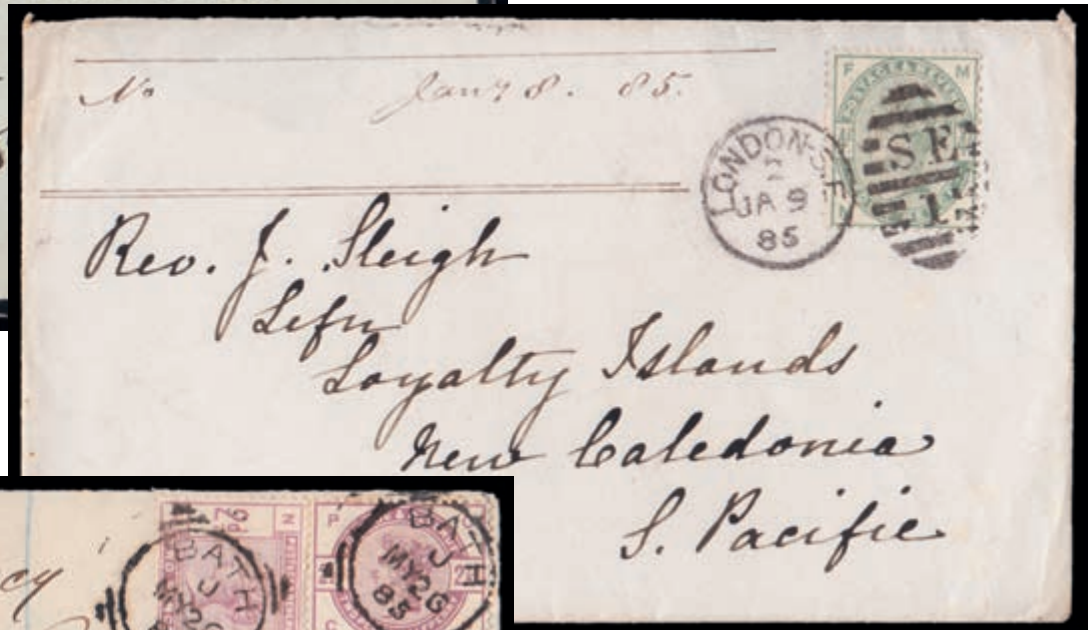 No Jany 8. 85.
F M
LONDON-S.E
JA 9
85
SE
1
Rev. J. Sleigh
Lifu
Loyalty Islands
New Caledonia
S. Pacific
N
P
BATH
J
MY 26
BATH
J
MY 26
85
cy